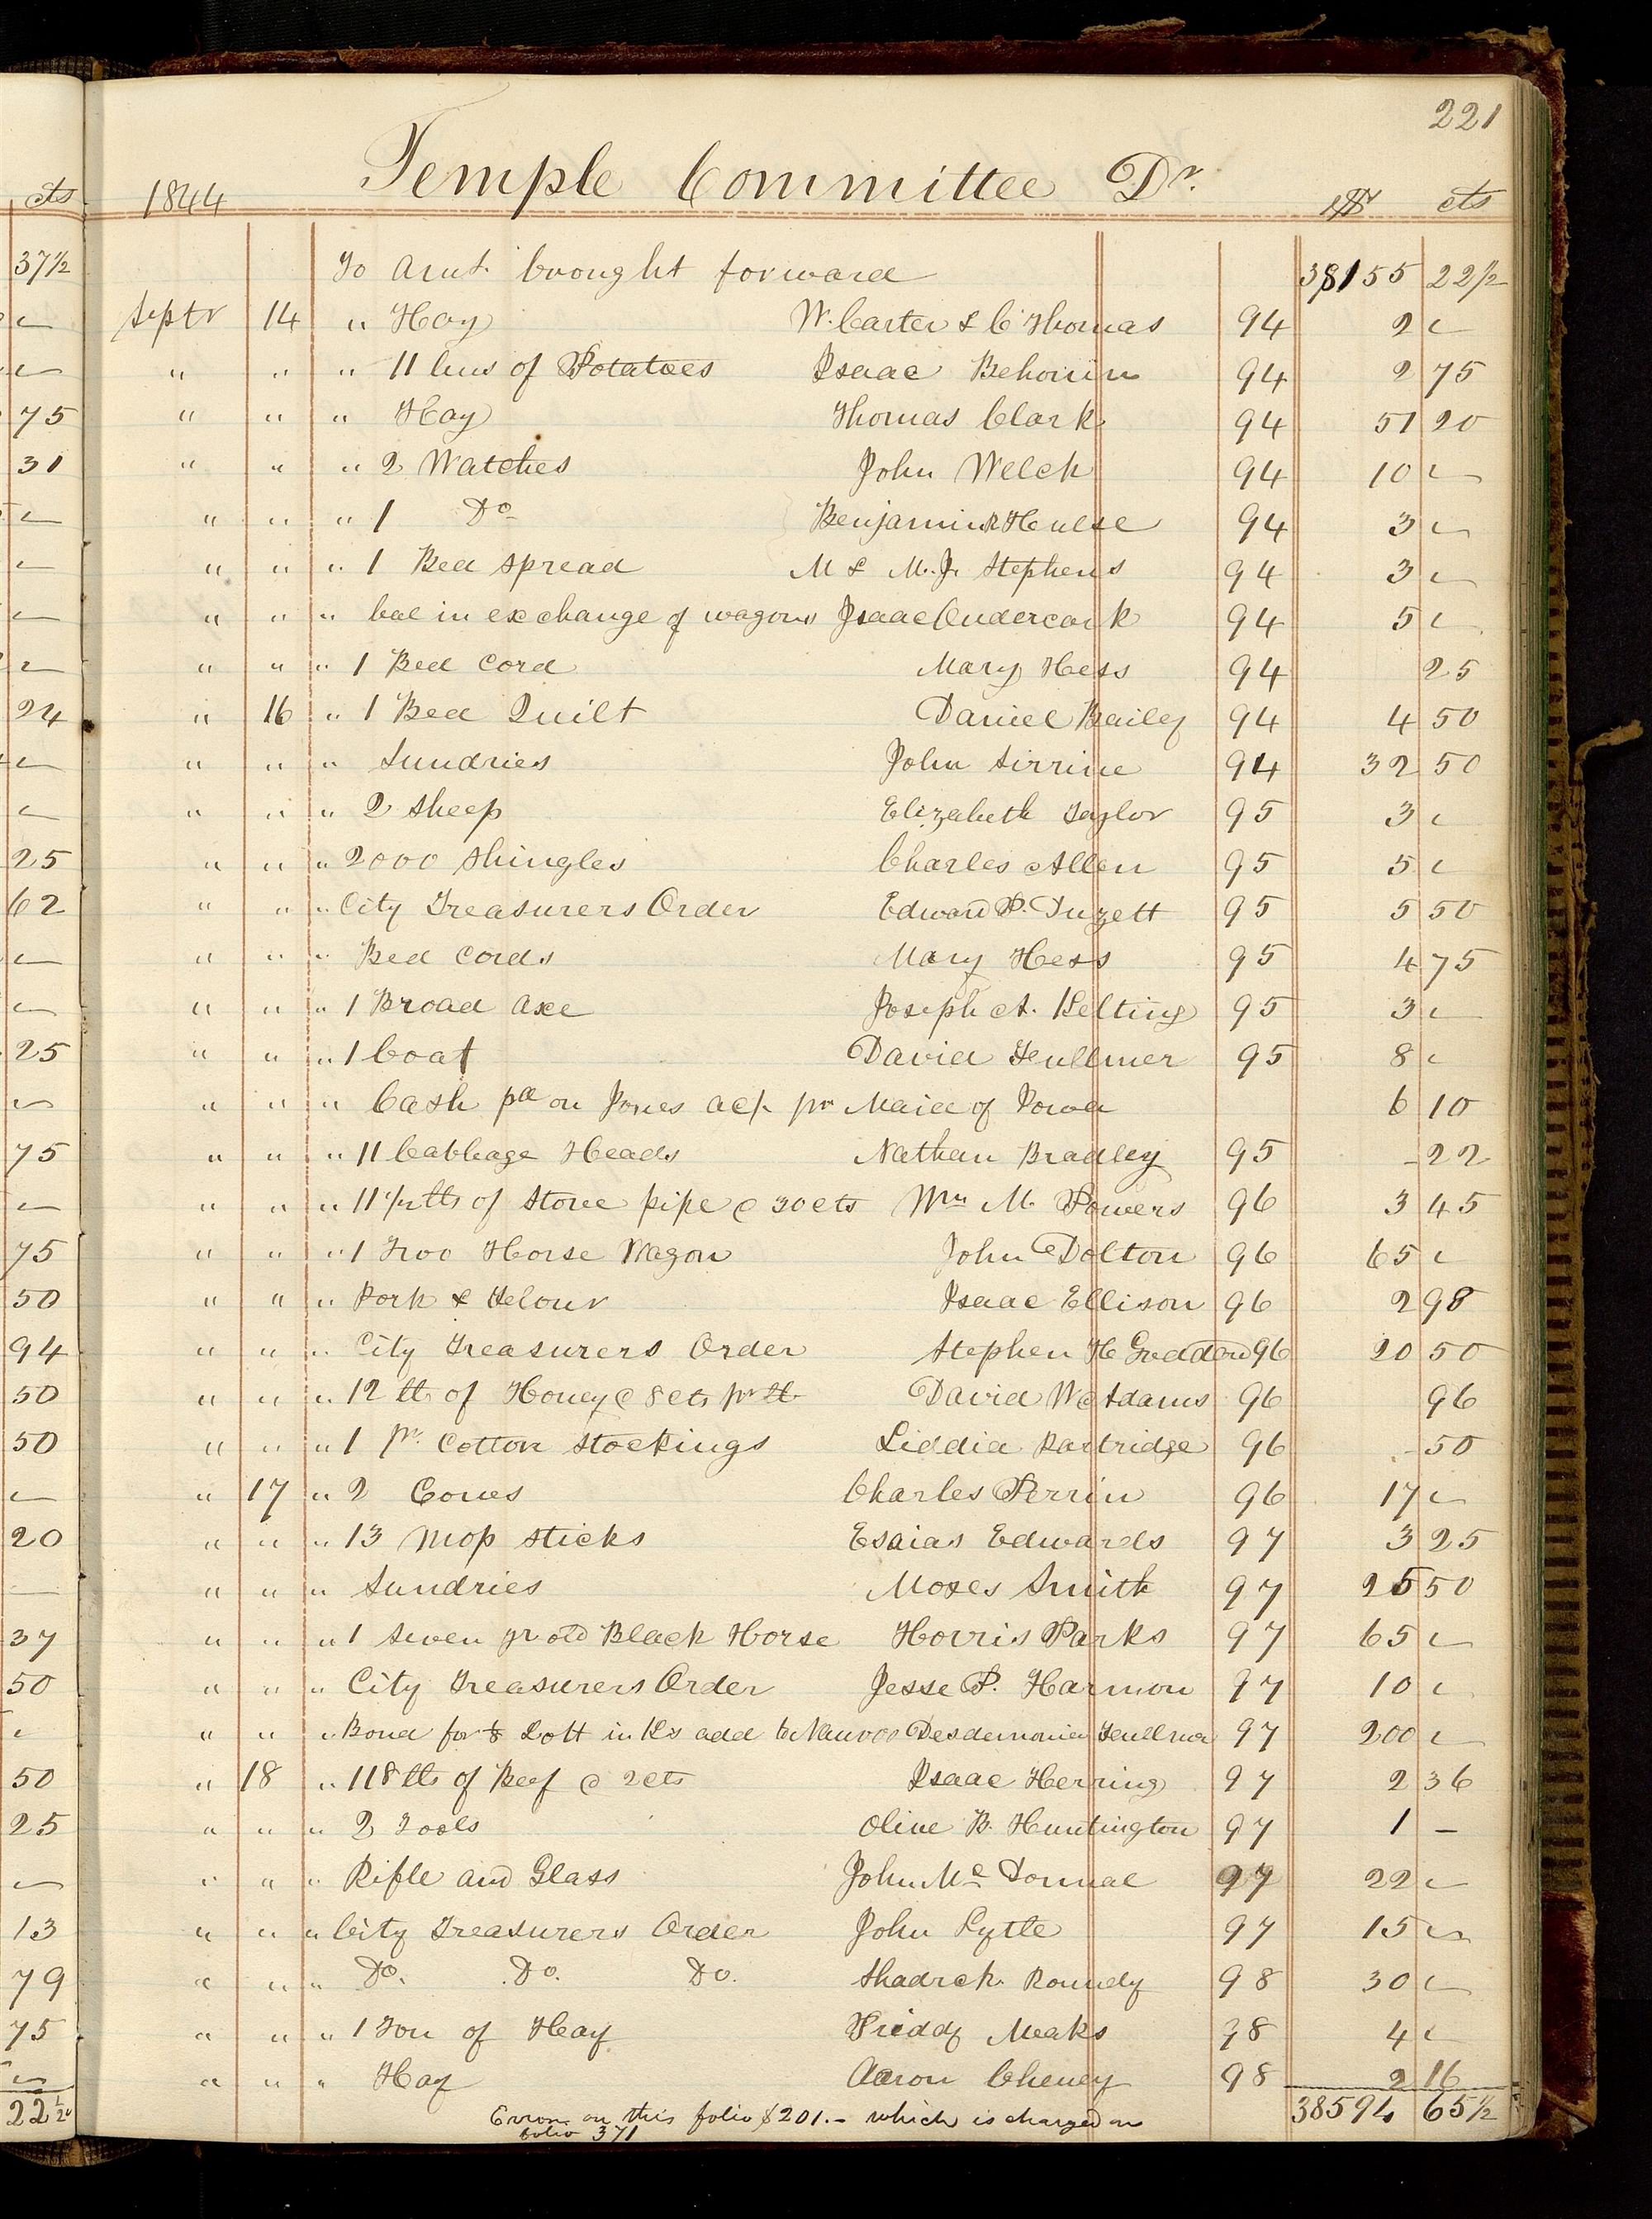 221
Temple Committee Dr.
cts 1844 $ cts
37½ To Amt. brought forward 38155 22½
Septr 14 " Hay W. Carter & C Thomas 94 2 —
" " " 11 bus of Potatoes Isaac Behonin 94 2 75
75 " " " Hay Thomas Clark 94 51 20
31 " " " 2 Watches John Welch 94 10 —
" " " 1 Do Benjamin R Hulse 94 3 —
" " " 1 Bed Spread M & M. J. Stephens 94 3 —
" " " bal in exchange of wagons Isaac 94 5 —
" " " 1 Bed Cord Mary Hess 94 25
24 " 16 " 1 Bed Quilt Daniel Bailey 94 4 50
" " " Sundries John Sirrine 94 32 50
" " " 2 Sheep Elizabeth Taylor 95 3 —
25 " " " 2000 Shingles Charles Allen 95 5 —
62 " " " City Treasurers Order Edward P. Duzett 95 5 50
" " " Bed Cords Mary Hess 95 4 75
" " " 1 Broad Axe Joseph A. Kelting 95 3 —
25 " " " 1 Coat David Fullmer 95 8 —
" " " Cash pd on Jones acp. pr Maid of Iowa 6 10
75 " " " 11 Cabbage Heads Nathan Bradley 95 - 22
" " " 11½ lbs of Stove pipe @ 30 cts Wm M. Powers 96 3 45
75 " " " 1 Two Horse Wagon John Dolton 96 65 —
50 " " " Pork & Flour Isaac Ellison 96 2 98
94 " " " City Treasurers Order Stephen H Goddard 96 20 50
50 " " " 12 lb of Honey @ 8 cts pr lb David W Adams 96 96
50 " " " 1 pr. Cotton Stockings Liddia Partridge 96 - 50
" 17 " 2 Cows Charles Perrin 96 17 —
20 " " " 13 Mop Sticks Esaias Edwards 97 3 25
— " " " Sundries Moses Smith 97 25 50
37 " " " 1 Seven yr old Black Horse Horris Parks 97 65 —
50 " " " City Treasurers Order Jesse P. Harmon 97 10 —
" " " Bond for ⅛ Lott in Ks add to Nauvoo Desdemonia Fullmer 97 200 —
50 " 18 " 118 lbs of Beef @ 2 cts Isaac Herring 97 2 36
25 " " " 2 Tools Olive B. Huntington 97 1 —
" " " Rifle and Glass John Mc Donnal 97 22 —
13 " " " City Treasurers Order John Lytle 97 15 —
79 " " " Do. Do. Do. Shadrck Roundy 98 30 —
75 " " " 1 Ton of Hay Priddy Meaks 98 4 —
" " " Hay Aaron Cheney 98 2 16
22½ 38594 65½
Error on this folio $201.- which is charged on
folio 371